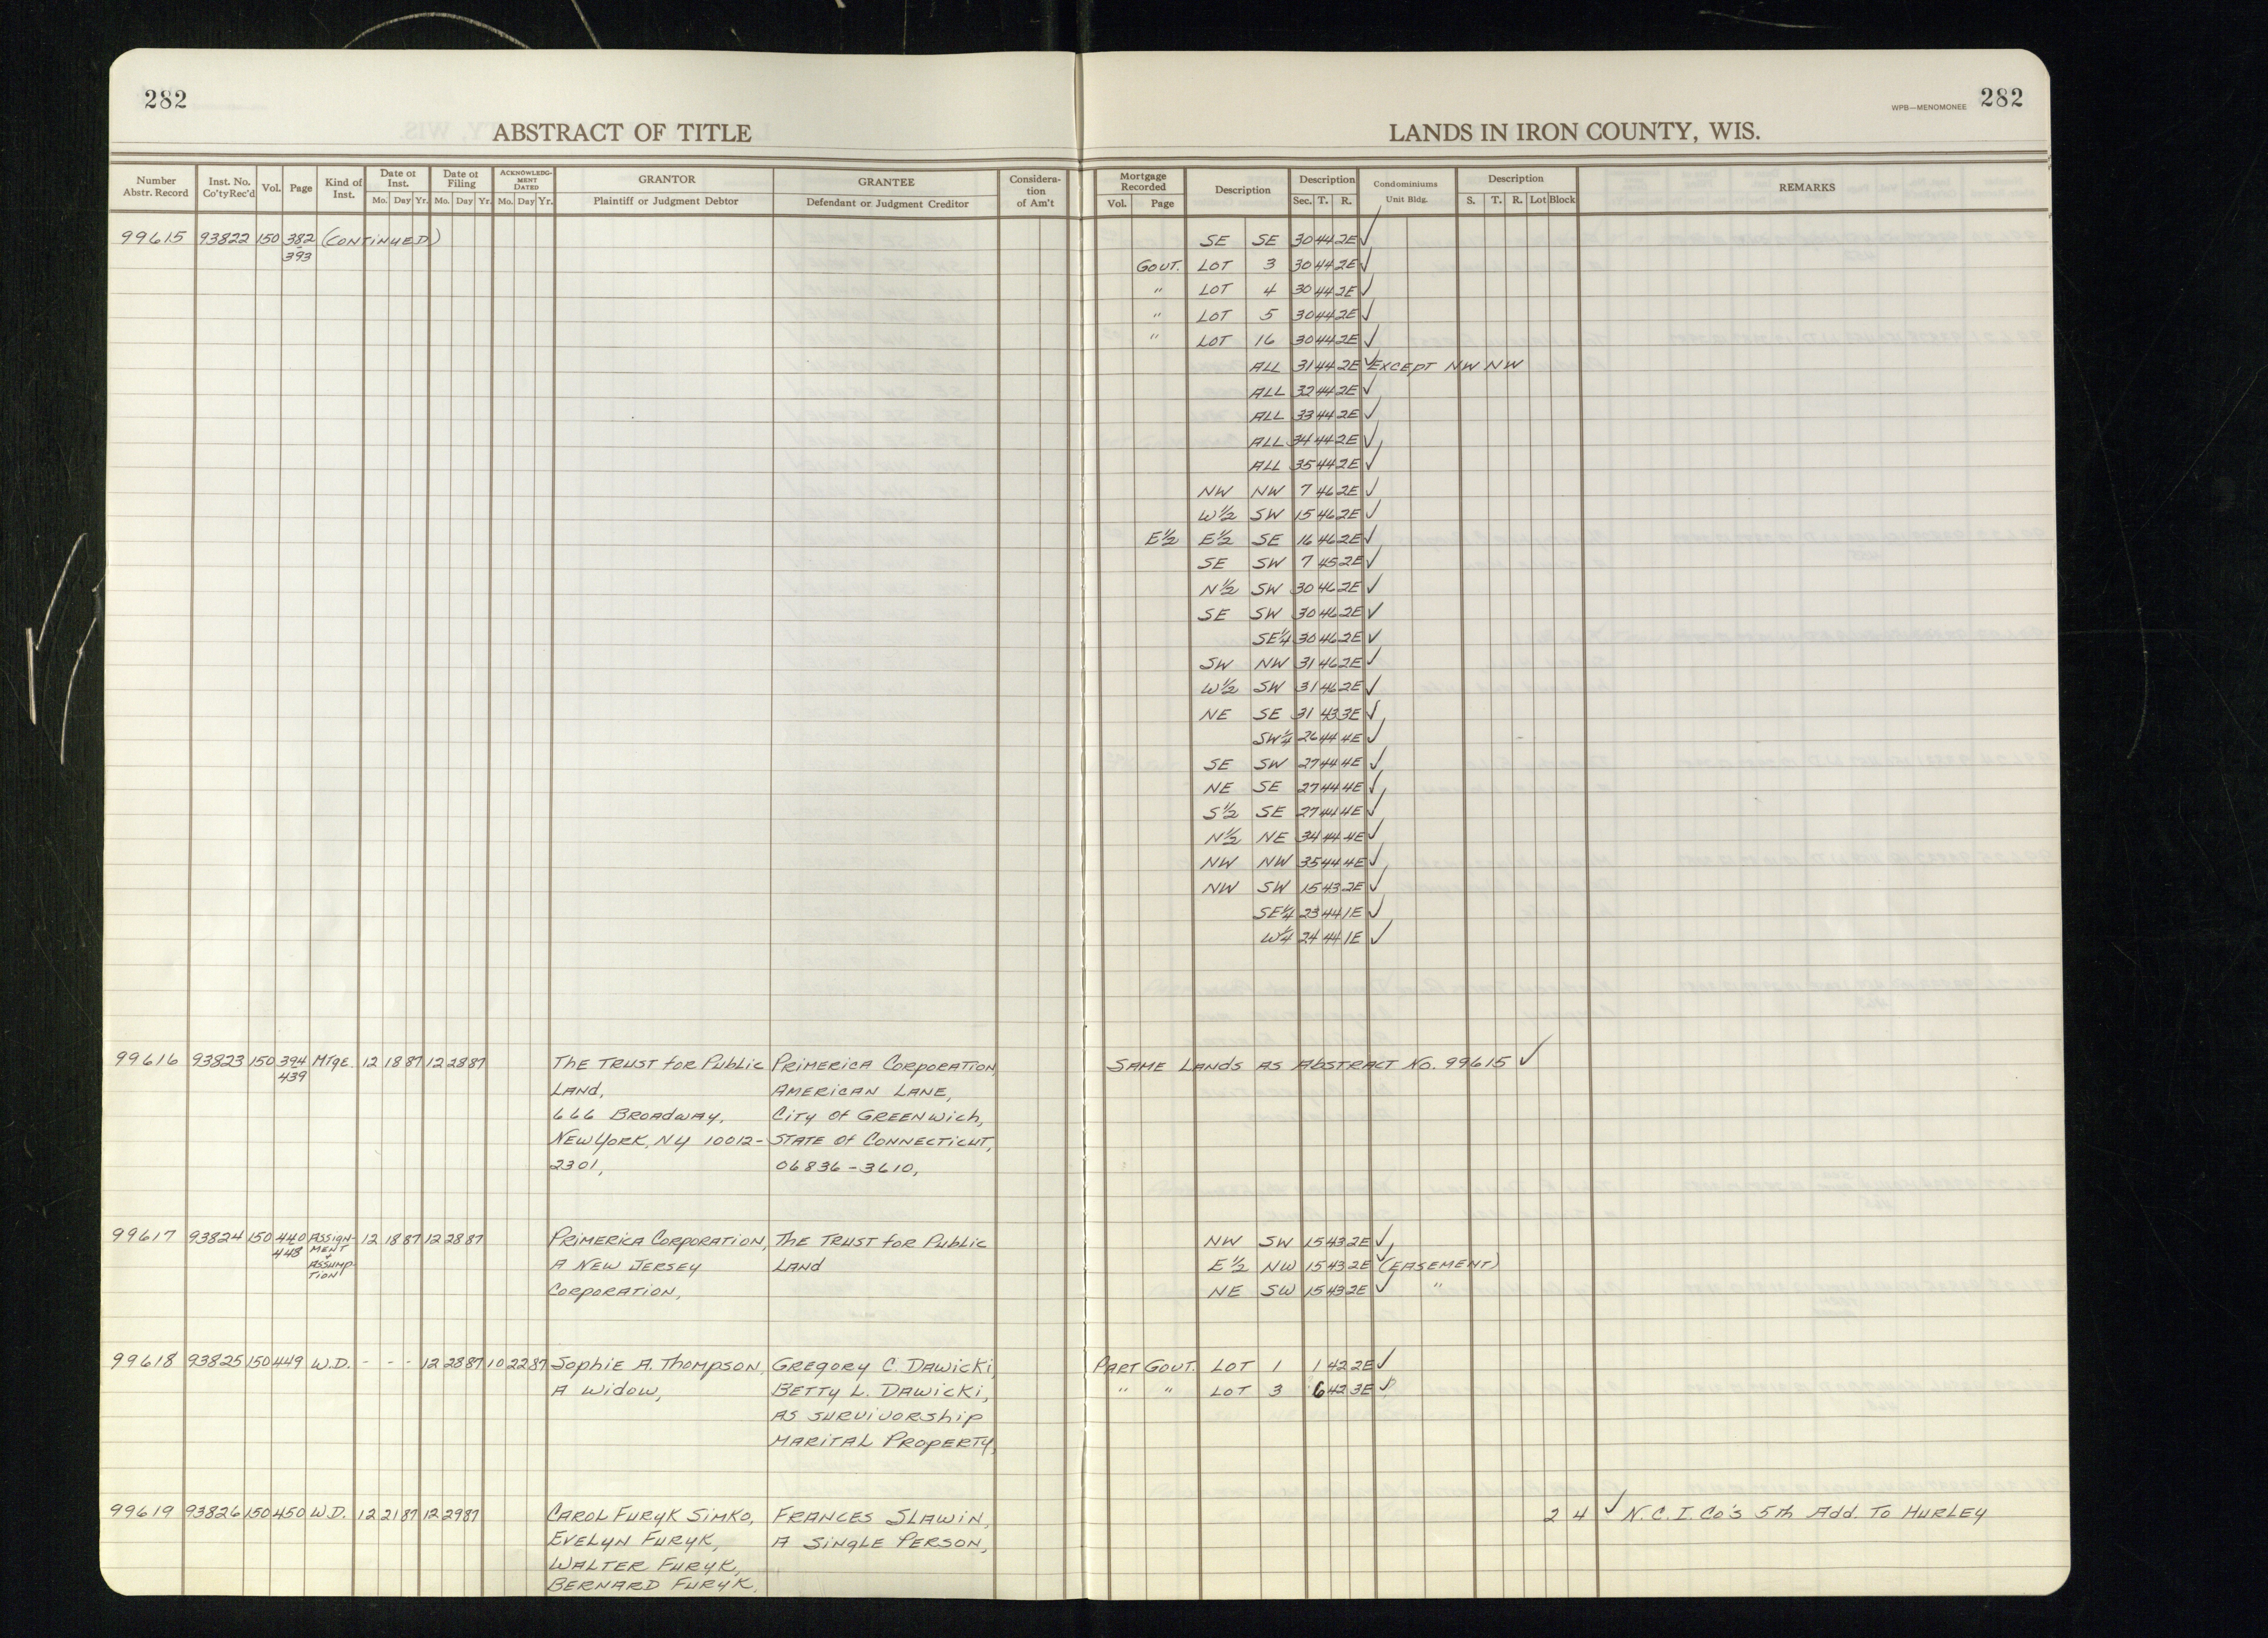 282
ABSTRACT OF TITLE
LANDS IN IRON COUNTY, WIS.
WPB—MENOMONEE 282
Number Abstr. Record Inst. No. Co'ty Rec'd Vol. Page Kind of Inst. Date of Inst. Mo. Day Yr. Date of Filing Mo. Day Yr. ACKNOWLEDGMENT DATED Mo. Day Yr. GRANTOR Plaintiff or Judgment Debtor GRANTEE Defendant or Judgment Creditor Consideration of Am't Mortgage Recorded Vol. Page Description Description Sec. T. R. Condominiums Unit Bldg. Description S. T. R. Lot Block REMARKS
99615 93822 150 382 (CONTINUED) SE SE 30 44 2E ✓
393 GOVT. LOT 3 30 44 2E ✓
" LOT 4 30 44 2E ✓
" LOT 5 30 44 2E ✓
" LOT 16 30 44 2E ✓
ALL 31 44 2E ✓ EXCEPT NW NW
ALL 32 44 2E ✓
ALL 33 44 2E ✓
ALL 34 44 2E ✓
ALL 35 44 2E ✓
NW NW 7 46 2E ✓
W½ SW 15 46 2E ✓
E½ E½ SE 16 46 2E ✓
SE SW 7 45 2E ✓
N½ SW 30 46 2E ✓
SE SW 30 46 2E ✓
SE¼ 30 46 2E ✓
SW NW 31 46 2E ✓
W½ SW 31 46 2E ✓
NE SE 31 43 3E ✓
SW¼ 26 44 4E ✓
SE SW 27 44 4E ✓
NE SE 27 44 4E ✓
S½ SE 27 44 4E ✓
N½ NE 34 44 4E ✓
NW NW 35 44 4E ✓
NW SW 15 43 2E ✓
SE¼ 23 44 1E ✓
W¼ 24 44 1E ✓
99616 93823 150 394 MTge. 12 18 87 12 28 87 THE TRUST for Public PRIMERICA CORPORATION, SAME LANDS AS ABSTRACT NO. 99615 ✓
439 LAND, AMERICAN LANE,
666 BROADWAY, CITY OF GREENWich,
NEW YORK, NY 10012- STATE OF CONNECTICUT,
2301, 06836-3610,
99617 93824 150 440 ASSIGN- 12 18 87 12 28 87 PRIMERICA CORPORATION, THE TRUST for Public NW SW 15 43 2E ✓
448 MENT + A NEW JERSEY LAND E½ NW 15 43 2E ✓ (EASEMENT)
ASSUMP-
TION CORPORATION, NE SW 15 43 2E ✓ "
99618 93825 150 449 W.D. - - - 12 28 87 10 22 87 Sophie A. Thompson, GREGORY C. DAWICKI, PART GOVT. LOT 1 1 42 2E ✓
A Widow, BETTY L. DAWICKI, " " LOT 3 6 42 3E ✓
AS SURVIVORSHIP
MARITAL PROPERTY,
99619 93826 150 450 W.D. 12 21 87 12 29 87 CAROL FURYK SIMKO, FRANCES SLAWIN, 2 4 ✓ N.C.I. Co's 5th Add. To HURLEY
EVELYN FURYK, A SINGLE PERSON,
WALTER FURYK,
BERNARD FURYK,